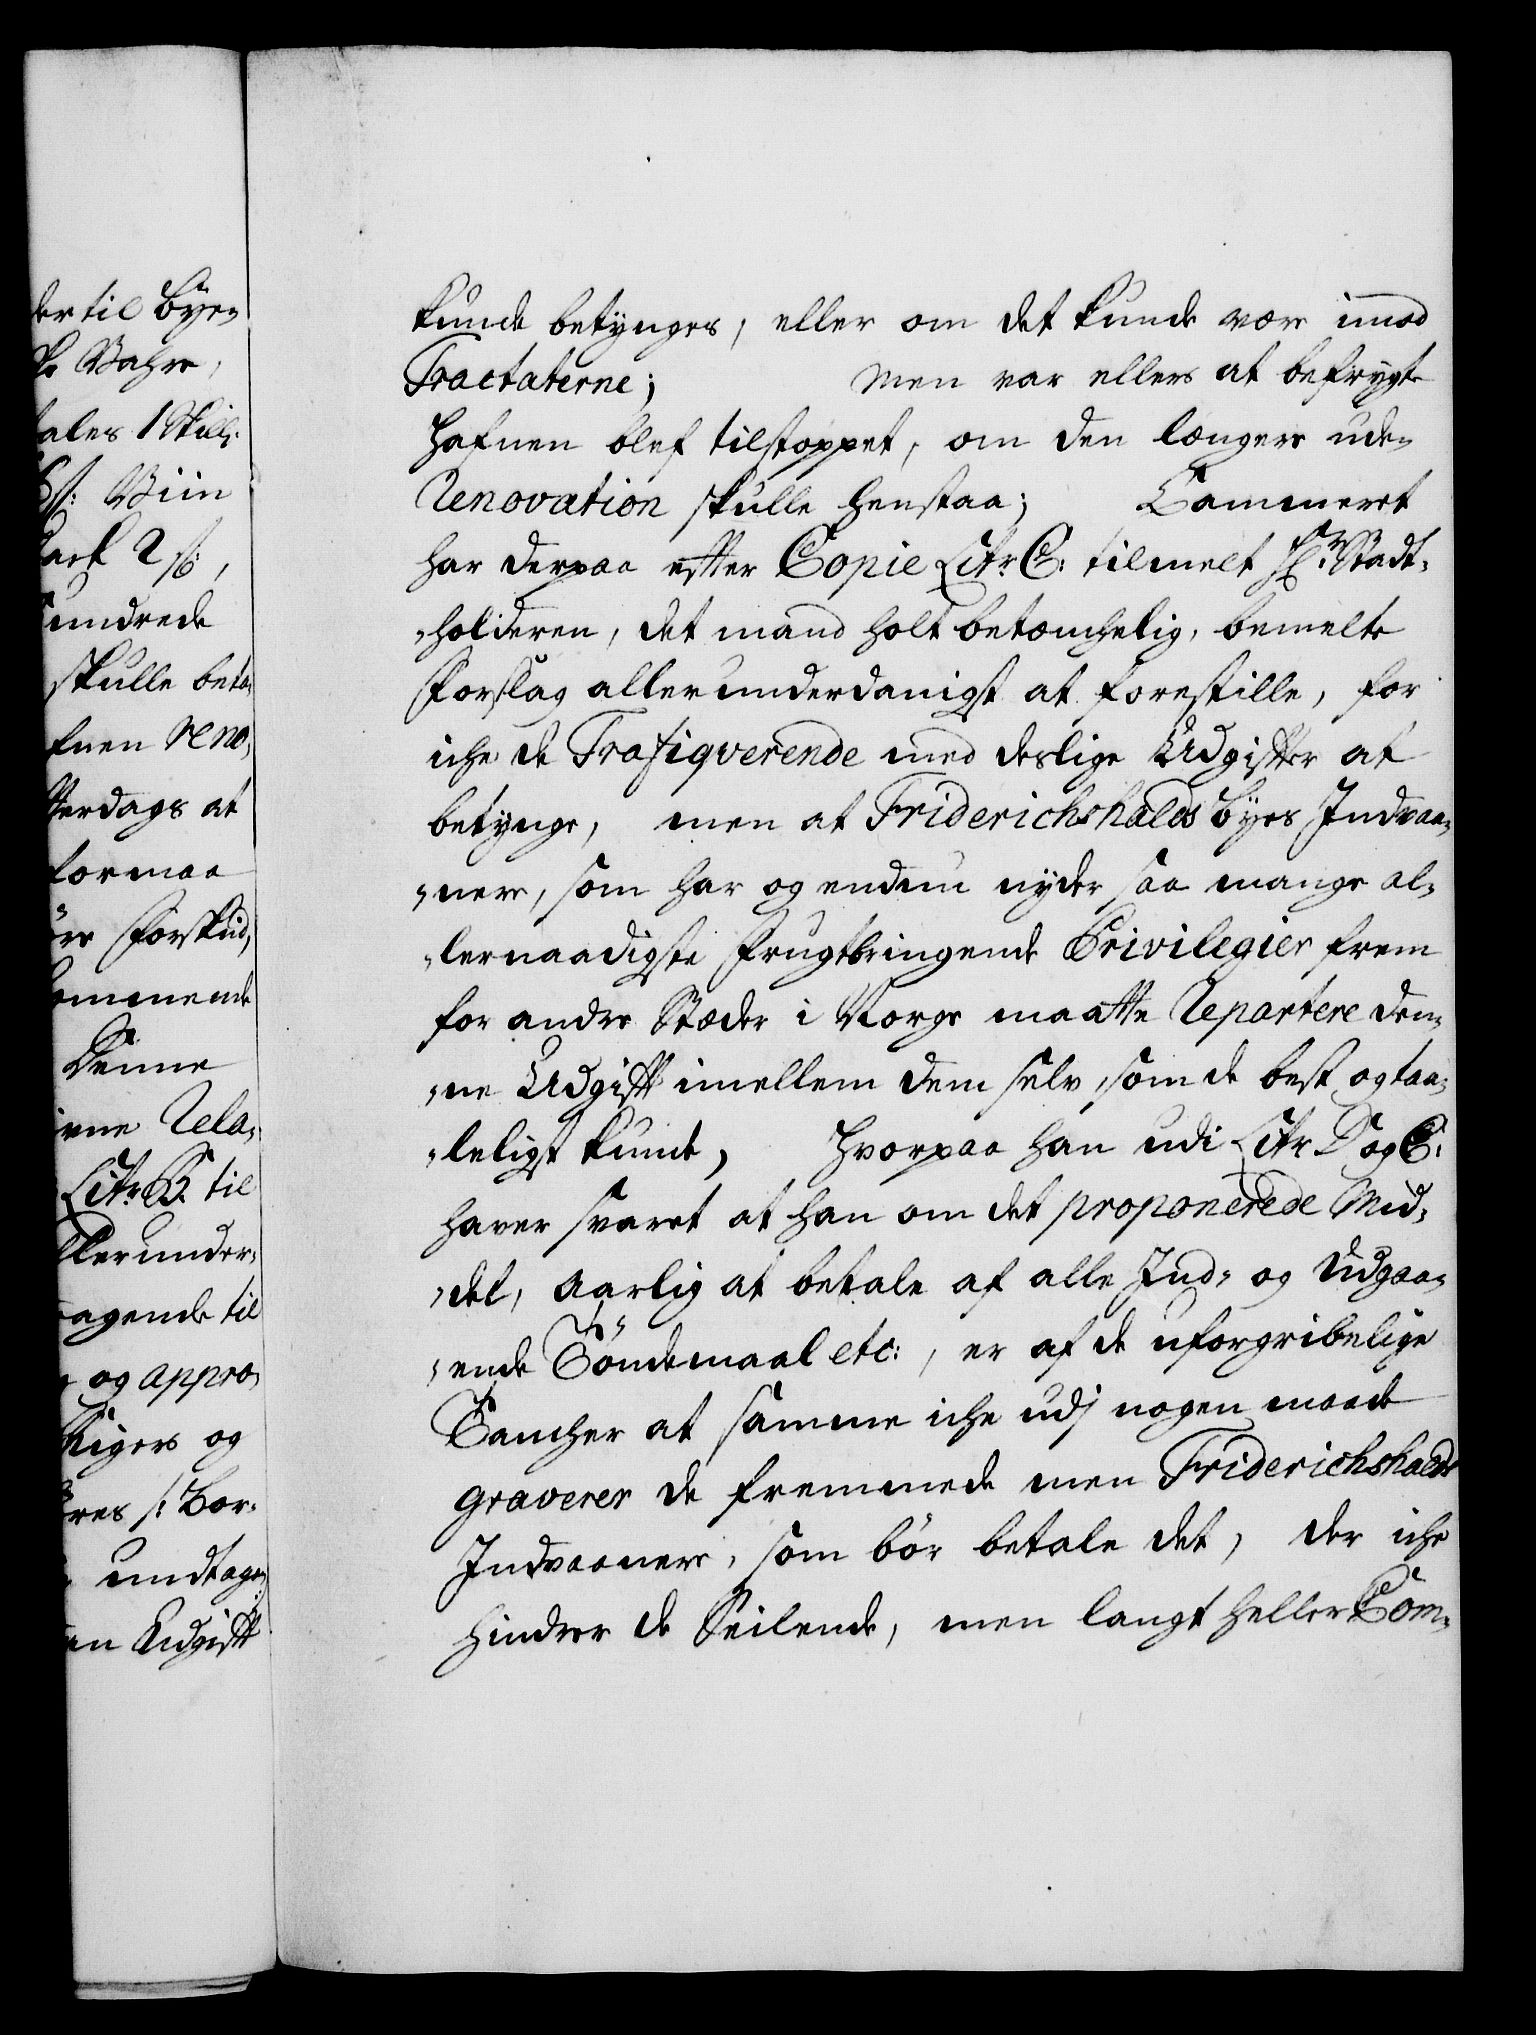 der til Byen
Vahre,
tales 1 Skill:
ß: Viin
2 ß,
hundrede
skulle beta-
fnen reno-
terdags at
formaa
Forskud,
kommende
Denne
Rela-
Litr: B. til
allerunder-
agende til
og appro
kiger og
res /: Bor-
undtagen
en Udgift
kunde betynges, eller om det kunde være imod
Tractaterne; Men var ellers at befrygte
Hafnen blef tilstoppet, om den længere uden
Renovation skulle henstaa; Cammeret
har derpaa efter Copie Litr: C: tilmelt Hr: Stadt-
-holderen, det mand holt betænchelig, bemelte
Forslag allerunderdanigst at forestille, for
iche de Trafiqverende med deslige Udgifter at
betynge, men at Friderichshalds Byes Indvaa-
-nere, som har og endnu nyder saa mange al-
-lernaadigste Frugtbringende Privilegier frem
for andre Stæder i Norge maatte Repartere den-
-ne Udgift imellem dem selv, som de best og taa-
-leligst kunde, Hvorpaa han udi Litr: D og E:
haver svaret at han om det proponerede Mid-
-del, Aarlig at betale af alle Ind- og Udgaa-
-ende Töndemaal etc:, er af de uforgribelige
Tancher at samme iche udj nogen maade
graverer de fremmede men Friderichshalds
Indvaanere, som bör betale det, der iche
hindrer de Seilende, men langt heller Com-